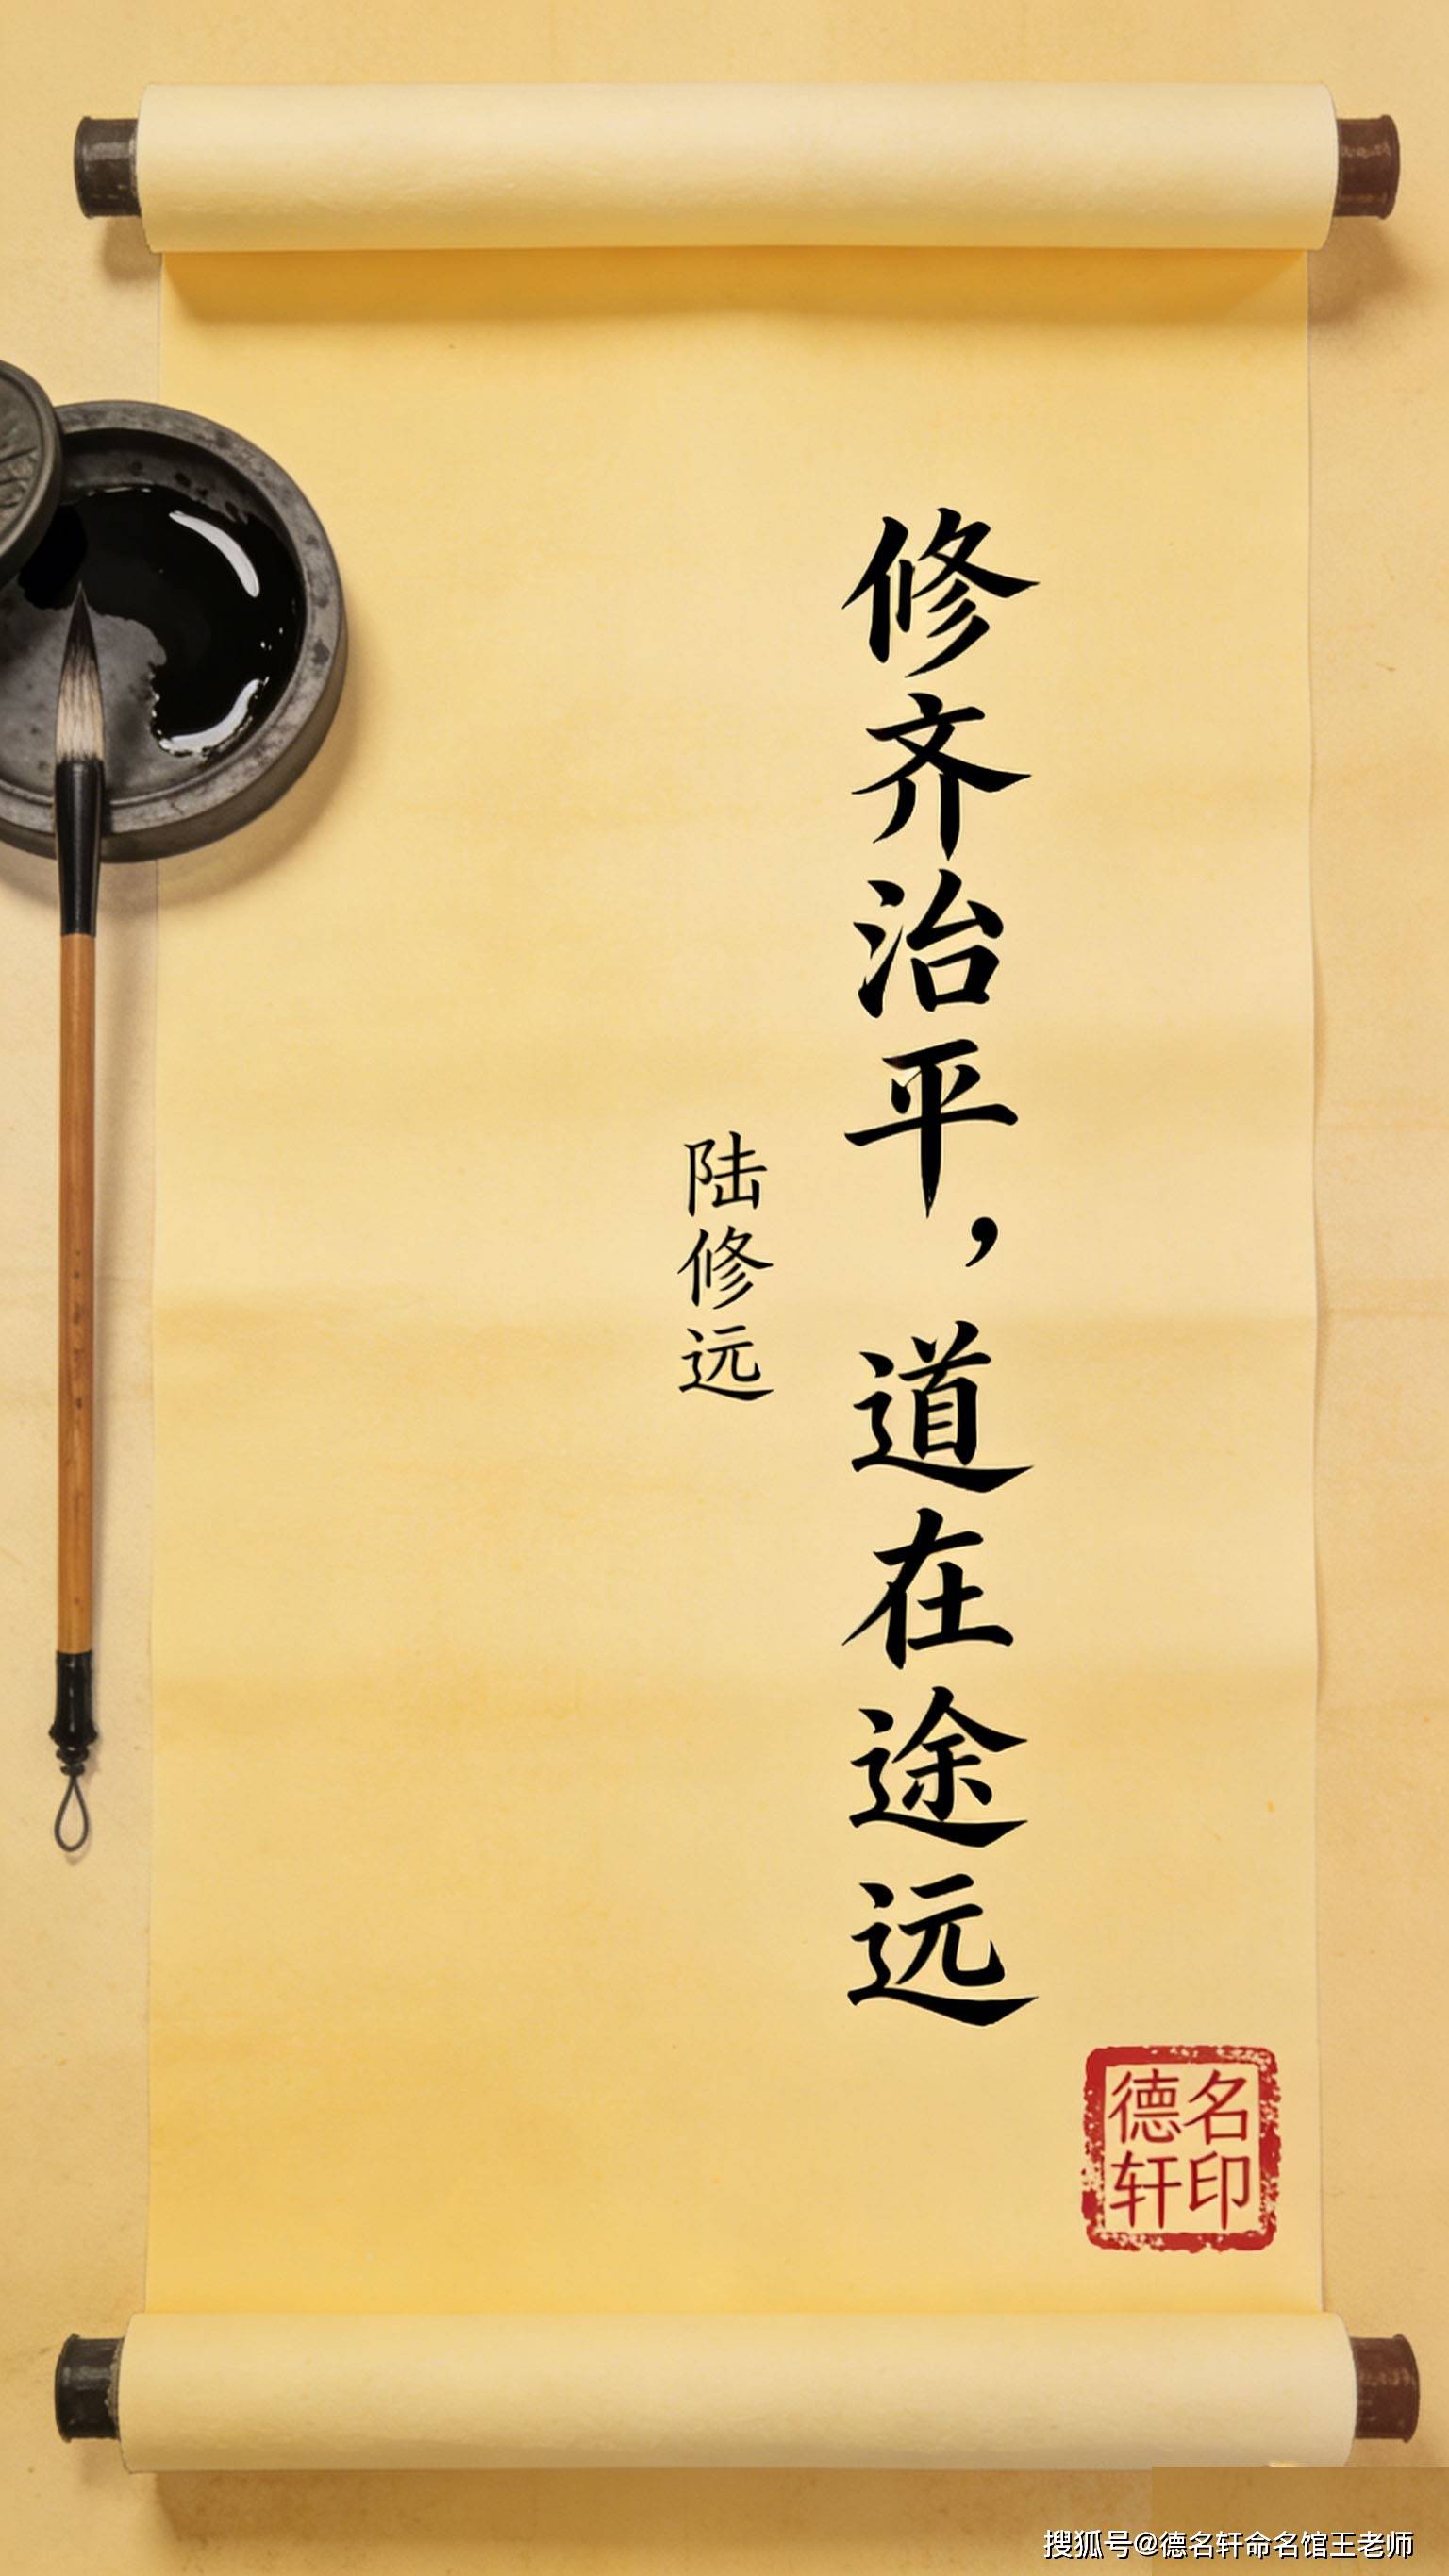 修齐治平，道在途远
陆修远
德名
轩印
搜狐号@德名轩命名馆王老师